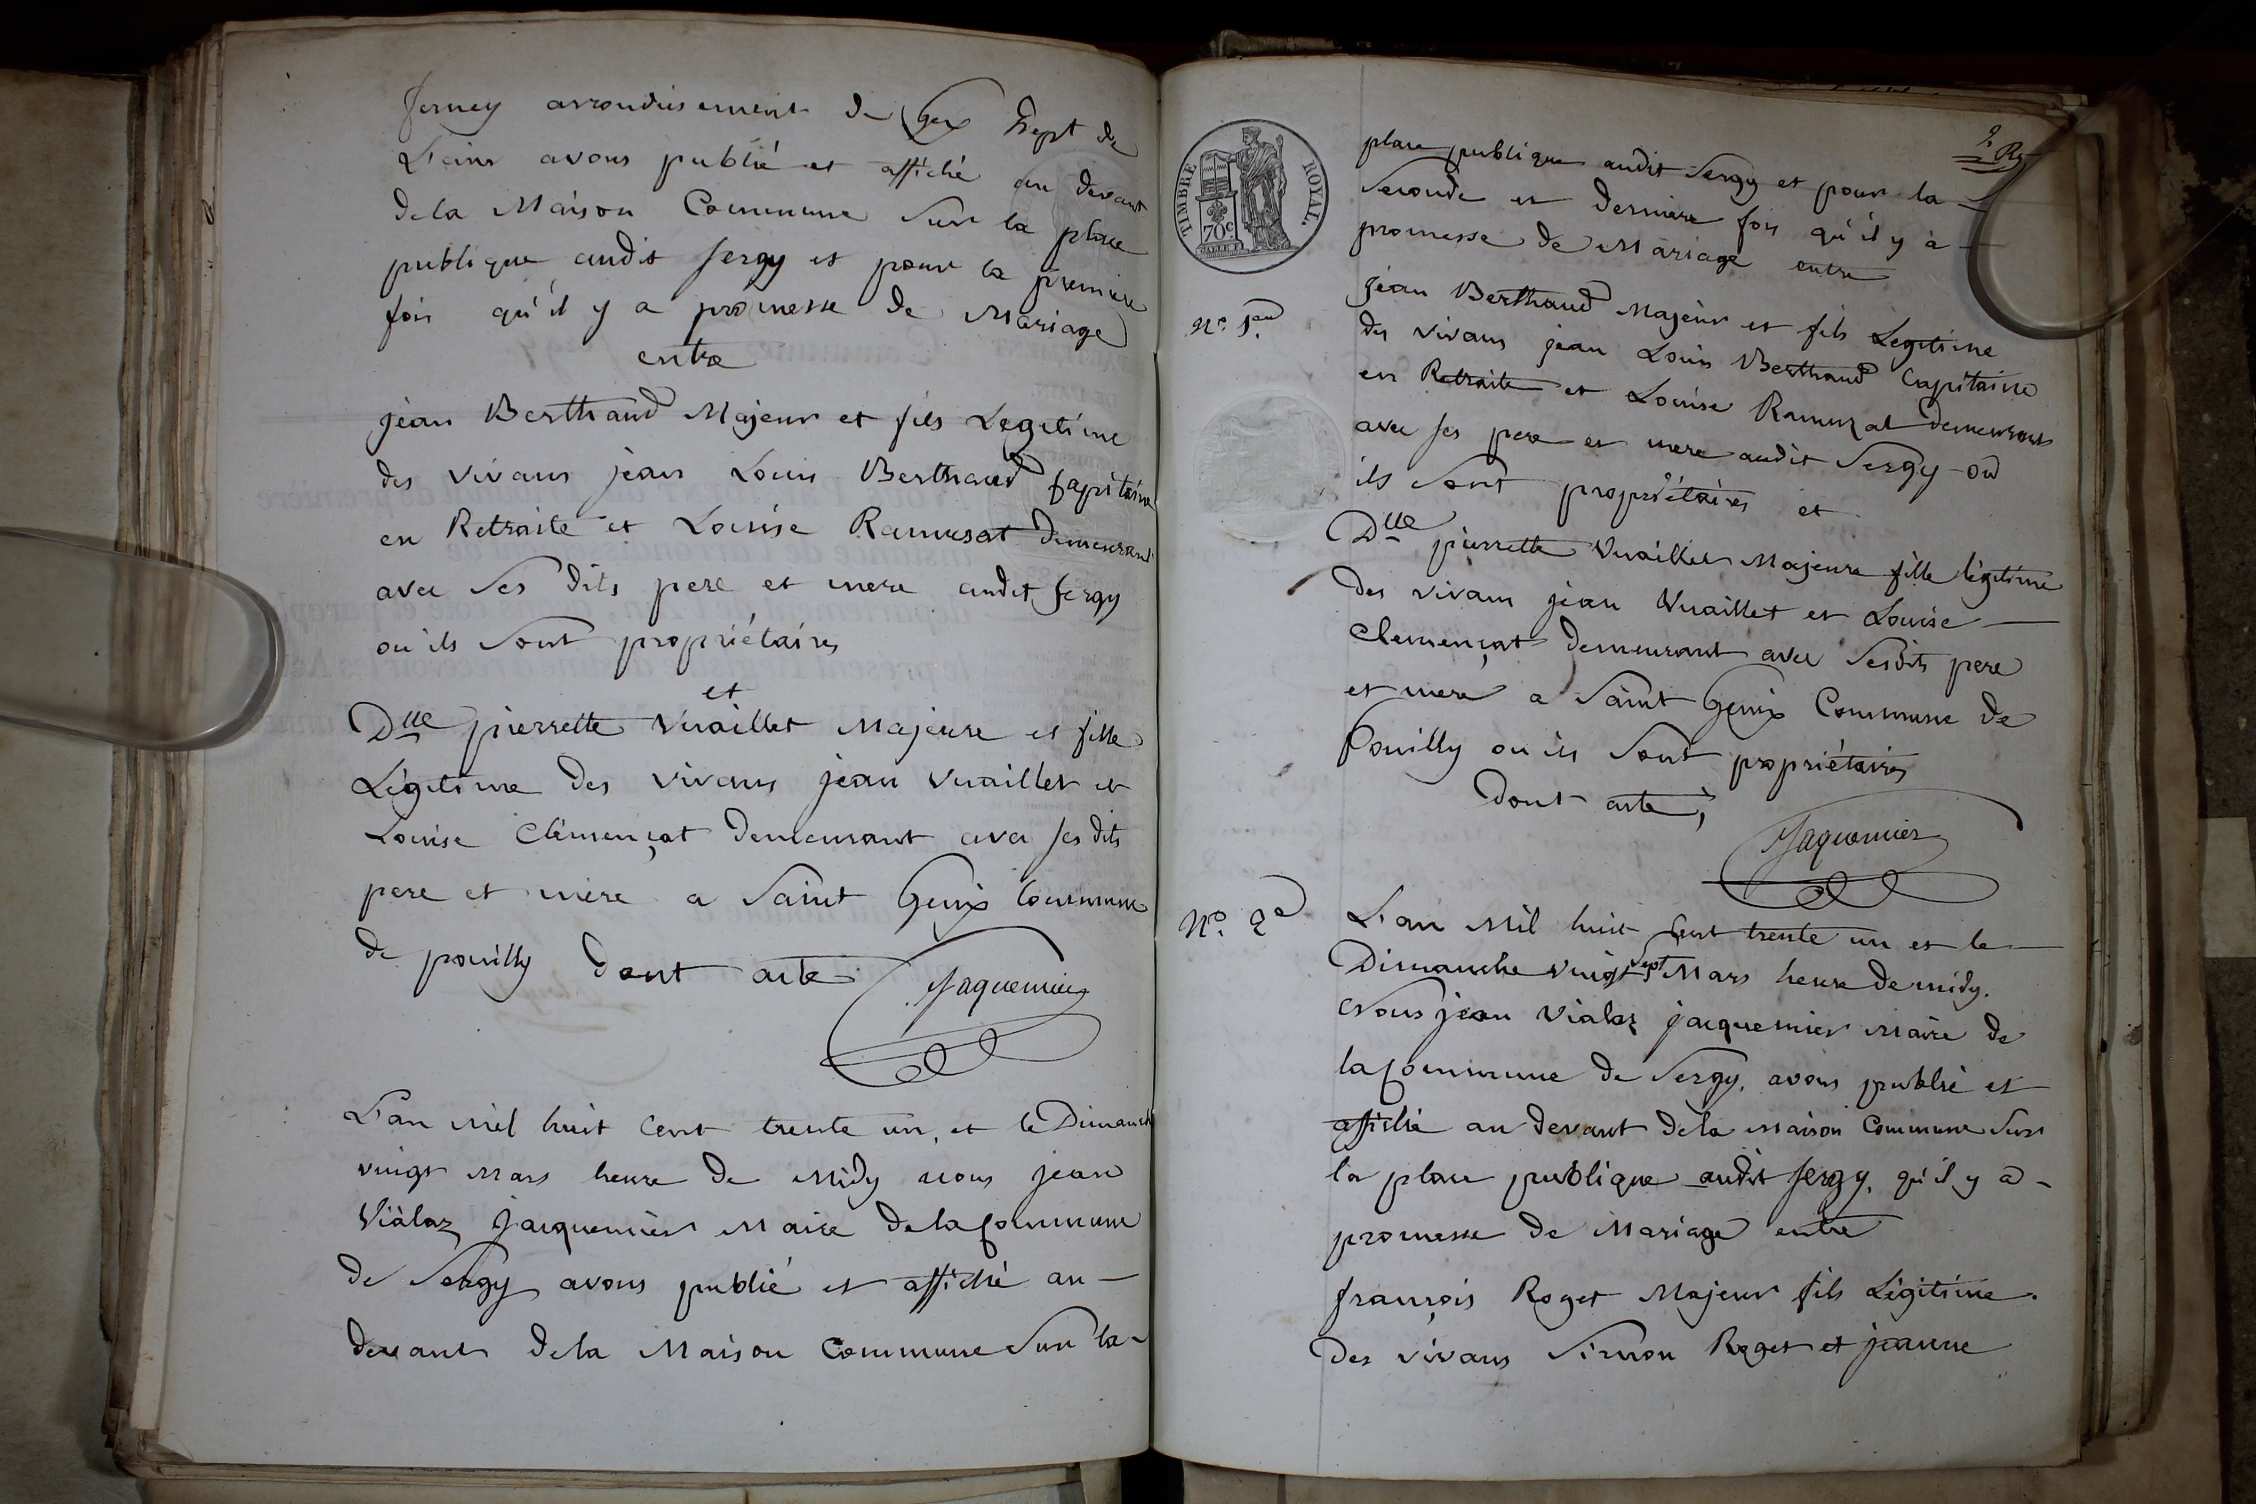 ferney arrondissement de Gex Dept de
L'ain avons publié et affiché au devant
dela Maison Commune Sur la place
publique audit Sergy et pour la premiere
fois qu'il y a promesse de Mariage
entre
jean Berthaud Majeur et fils Legitime
des vivans jean Louis Berthaud Capitaine
en Retraite et Louise Ramusat demeurant
avec Ses dits pere et mere audit Sergy
ou ils Sont propriétaires
et
Dlle pierrette Vuaillet Majeure et fille
Légitime des vivans jean Vuaillet et
Louise Clémençat demeurant avec Ses dits
pere et mère a Saint Genix Commune
de pouilly dont acte
Jaquemier
L'an Mil huit Cent trente un, et le Dimanche
vingt Mars heure de Midy nous jean
Vialaz Jacquemier Maire dela Commune
de Sergy avons publié et affiché au
devant dela Maison Commune Sur la
TIMBRE ROYAL.
70c
place publique audit Sergy et pour la
Seconde et derniere fois qu'il y à
promesse de Mariage entre
No 1er
jean Berthaud Majeur et fils Legitime
des vivans jean Louis Berthaud Capitaine
en Retraite et Louise Ramuzat demeurant
avec ses pere et mere audit Sergy où
ils Sont propriétaires et
Dlle pierrette Vuaillet Majeure fille légitime
des vivans jean Vuaillet et Louise
Clemençat demeurant avec Sesdits pere
et mere a Saint Genix Commune de
Pouilly ou ils Sont propriétaires
dont acte,
Jaquemier
No 2e
L'an Mil huit Cent trente un et le
Dimanche vingt sept Mars heure de midy.
Nous jean Vialaz jacquemier Maire de
la Commune de Sergy, avons publié et
affiché au devant dela Maison Commune Sur
la place publique audit Sergy, qu'il y a
promesse de Mariage entre
françois Roget Majeur fils Légitime
des vivans Simon Roget et jeanne